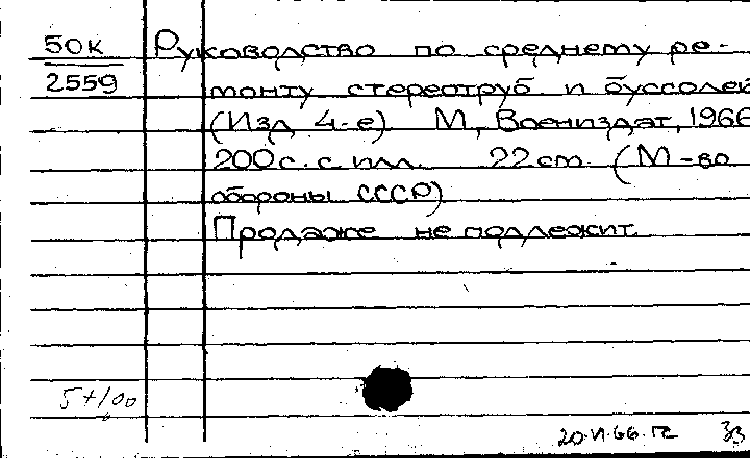 50К
2559
Руководство по среднему ре-
монту стереотруб и буссолей
(Изд 4-е) М, Воениздат, 1966
200с. с илл. 22 cm. (М-во
обороны СССР)
Продаже не подлежит.
20.VI.66. ЗЗ